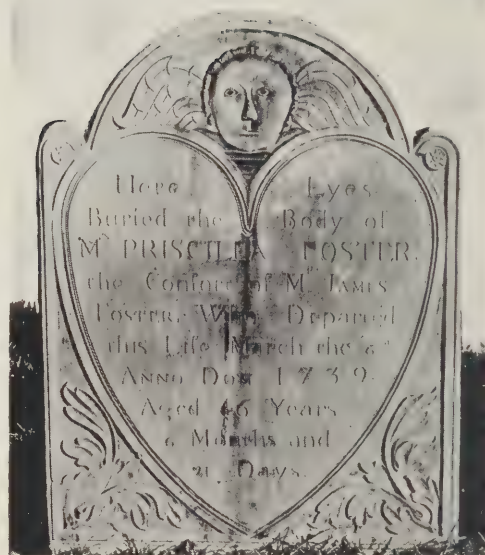 Here Lyes
Buried the Body of
Mrs PRISCILLA FOSTER,
the Consort of Mr JAMES
FOSTER, Who Departed
this Life March the 6th
ANNO DOM 1739.
Aged 46 Years
6 Months and
21 Days.